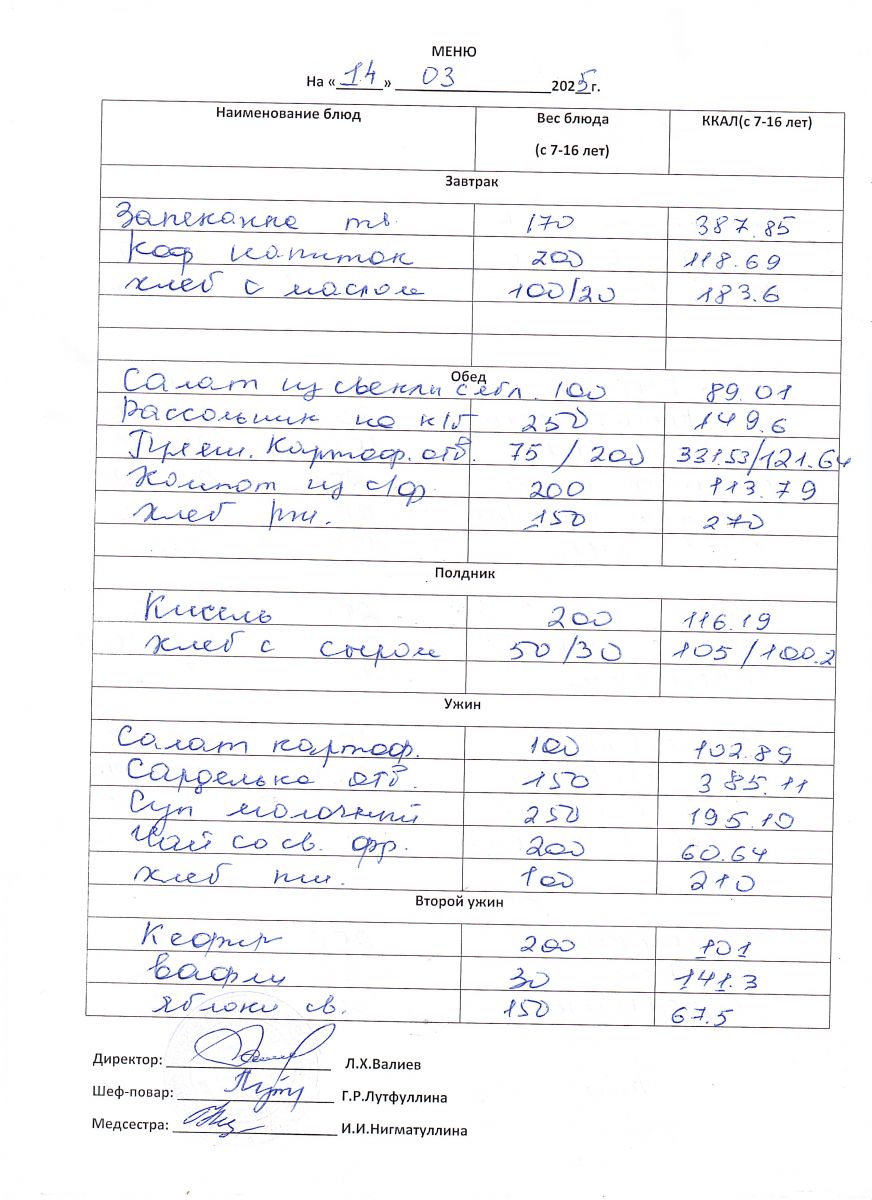 МЕНЮ
На « 14 » 03 2025г.
Наименование блюд Вес блюда (с 7-16 лет) ККАЛ(с 7-16 лет)
Завтрак
Запеканка тв. 170 387.85
Коф напиток 200 118.69
хлеб с маслом 100/20 183.6
Обед
Салат из свеклы с ябл. 100 89.01
Рассольник на к/б 250 149.6
Гуляш. Картоф. отв. 75 / 200 331.53/121.64
Компот из с/ф 200 113.79
хлеб рж. 150 270
Полдник
Кисель 200 116.19
хлеб с сыром 50/30 105/100.2
Ужин
Салат картоф. 100 102.89
Сарделька отв. 150 385.11
Суп молочный 250 195.10
Чай со св. фр. 200 60.64
хлеб пш. 100 210
Второй ужин
Кефир 200 101
вафли 30 141.3
яблоки св. 150 67.5
Директор: Л.Х.Валиев
Шеф-повар: Г.Р.Лутфуллина
Медсестра: И.И.Нигматуллина